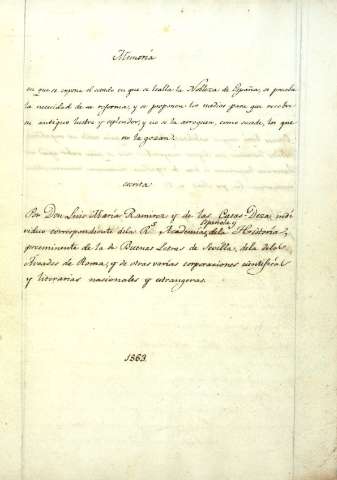 Memoria
en que se expone el estado en que se halla la Nobleza de España, se prueba
la necesidad de su reforma, y se proponen los medios para que recobre
su antiguo lustre y esplendor, y no se la arroguen, como sucede, los que
no la gozan.
escrita
Por Don Luis María Ramirez y de las Casas-Deza, indi
viduo correspondiente de las Rs. Academias, Española y de la Historia,
preeminente de la de Buenas Letras de Sevilla, de la de los
Arcades de Roma, y de otras varias corporaciones cientificas
y literarias nacionales y estrangeras.
1863.